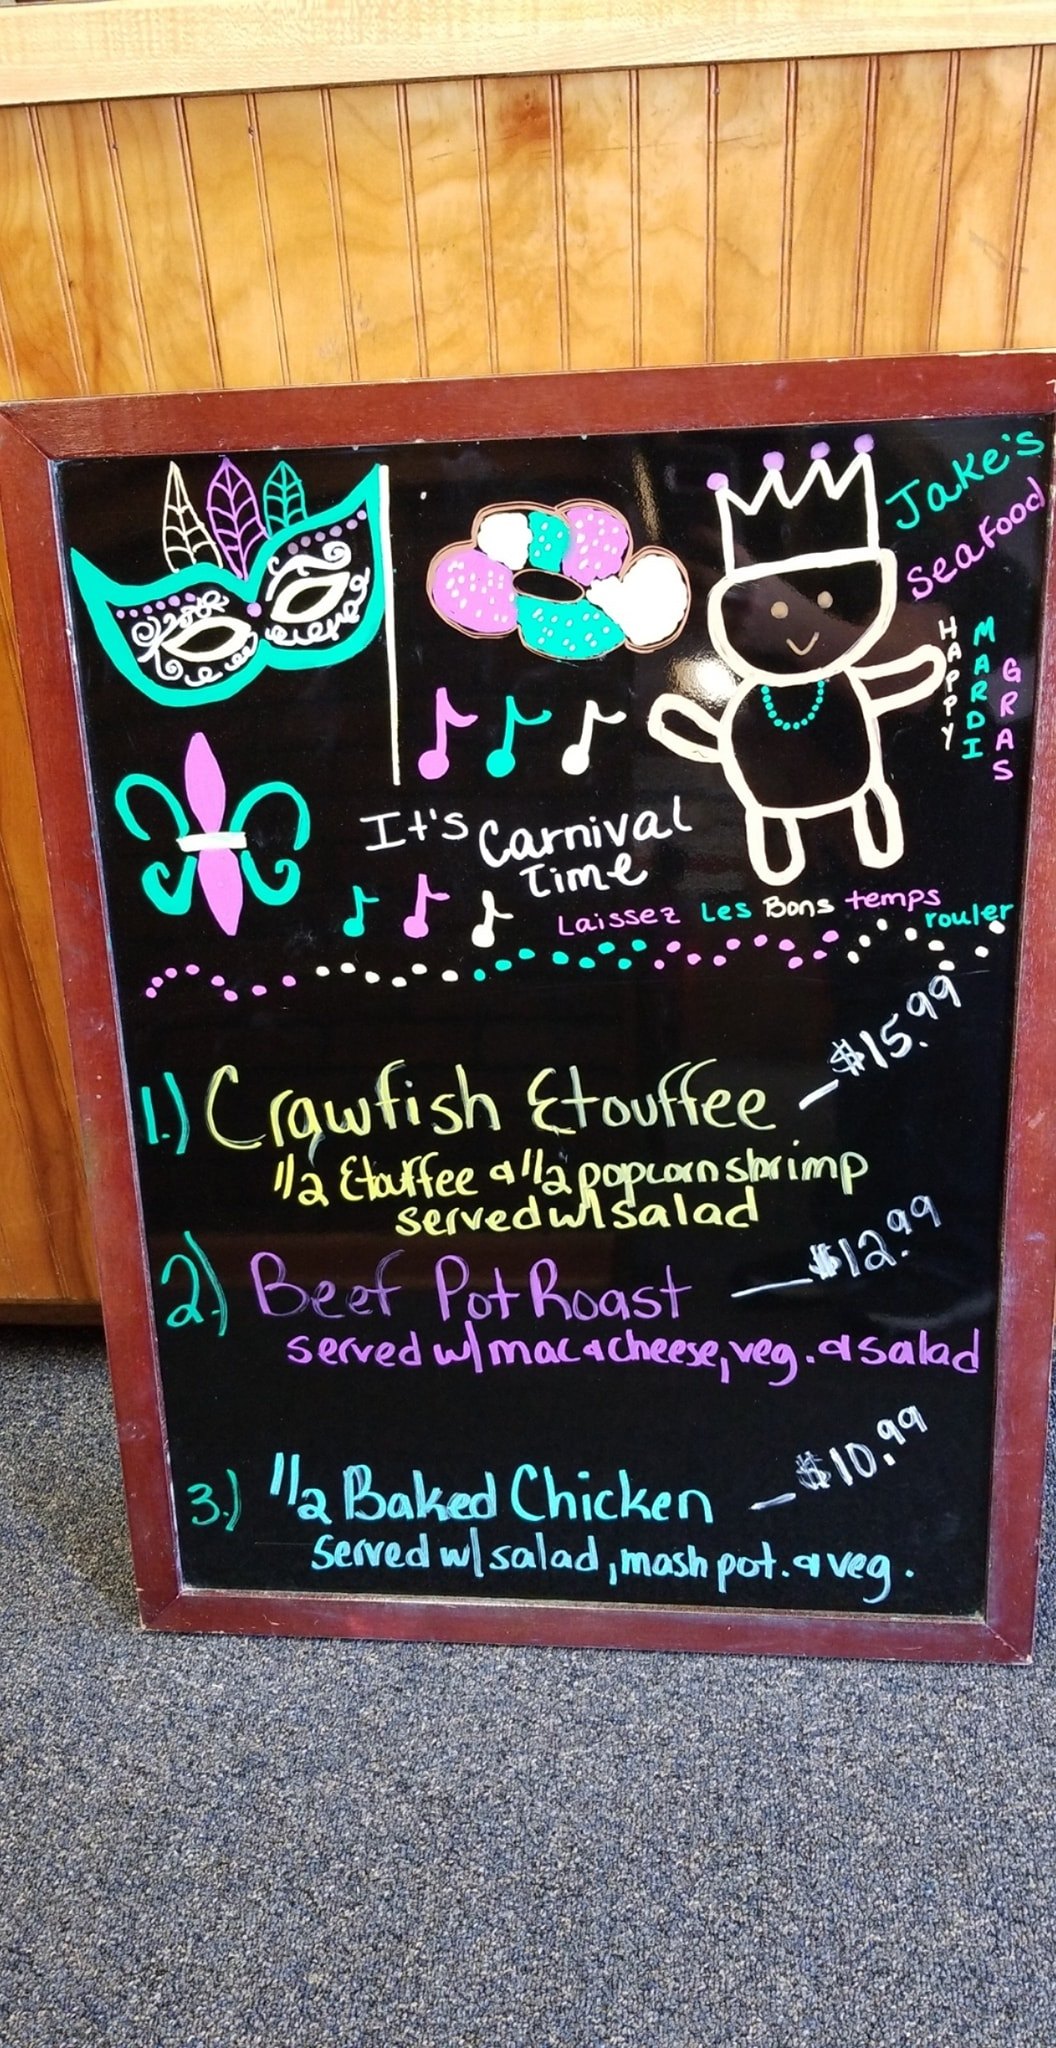 Jake's
Seafood
HAPPY
MARDI
GRAS
It's Carnival
Time
Laissez Les Bons temps
rouler
1.) Crawfish Etouffee — $15.99
1/2 Etouffee & 1/2 popcorn shrimp
served w/ salad
2.) Beef Pot Roast — $12.99
served w/ mac & cheese, veg. & salad
3.) 1/2 Baked Chicken — $10.99
served w/ salad, mash pot. & veg.